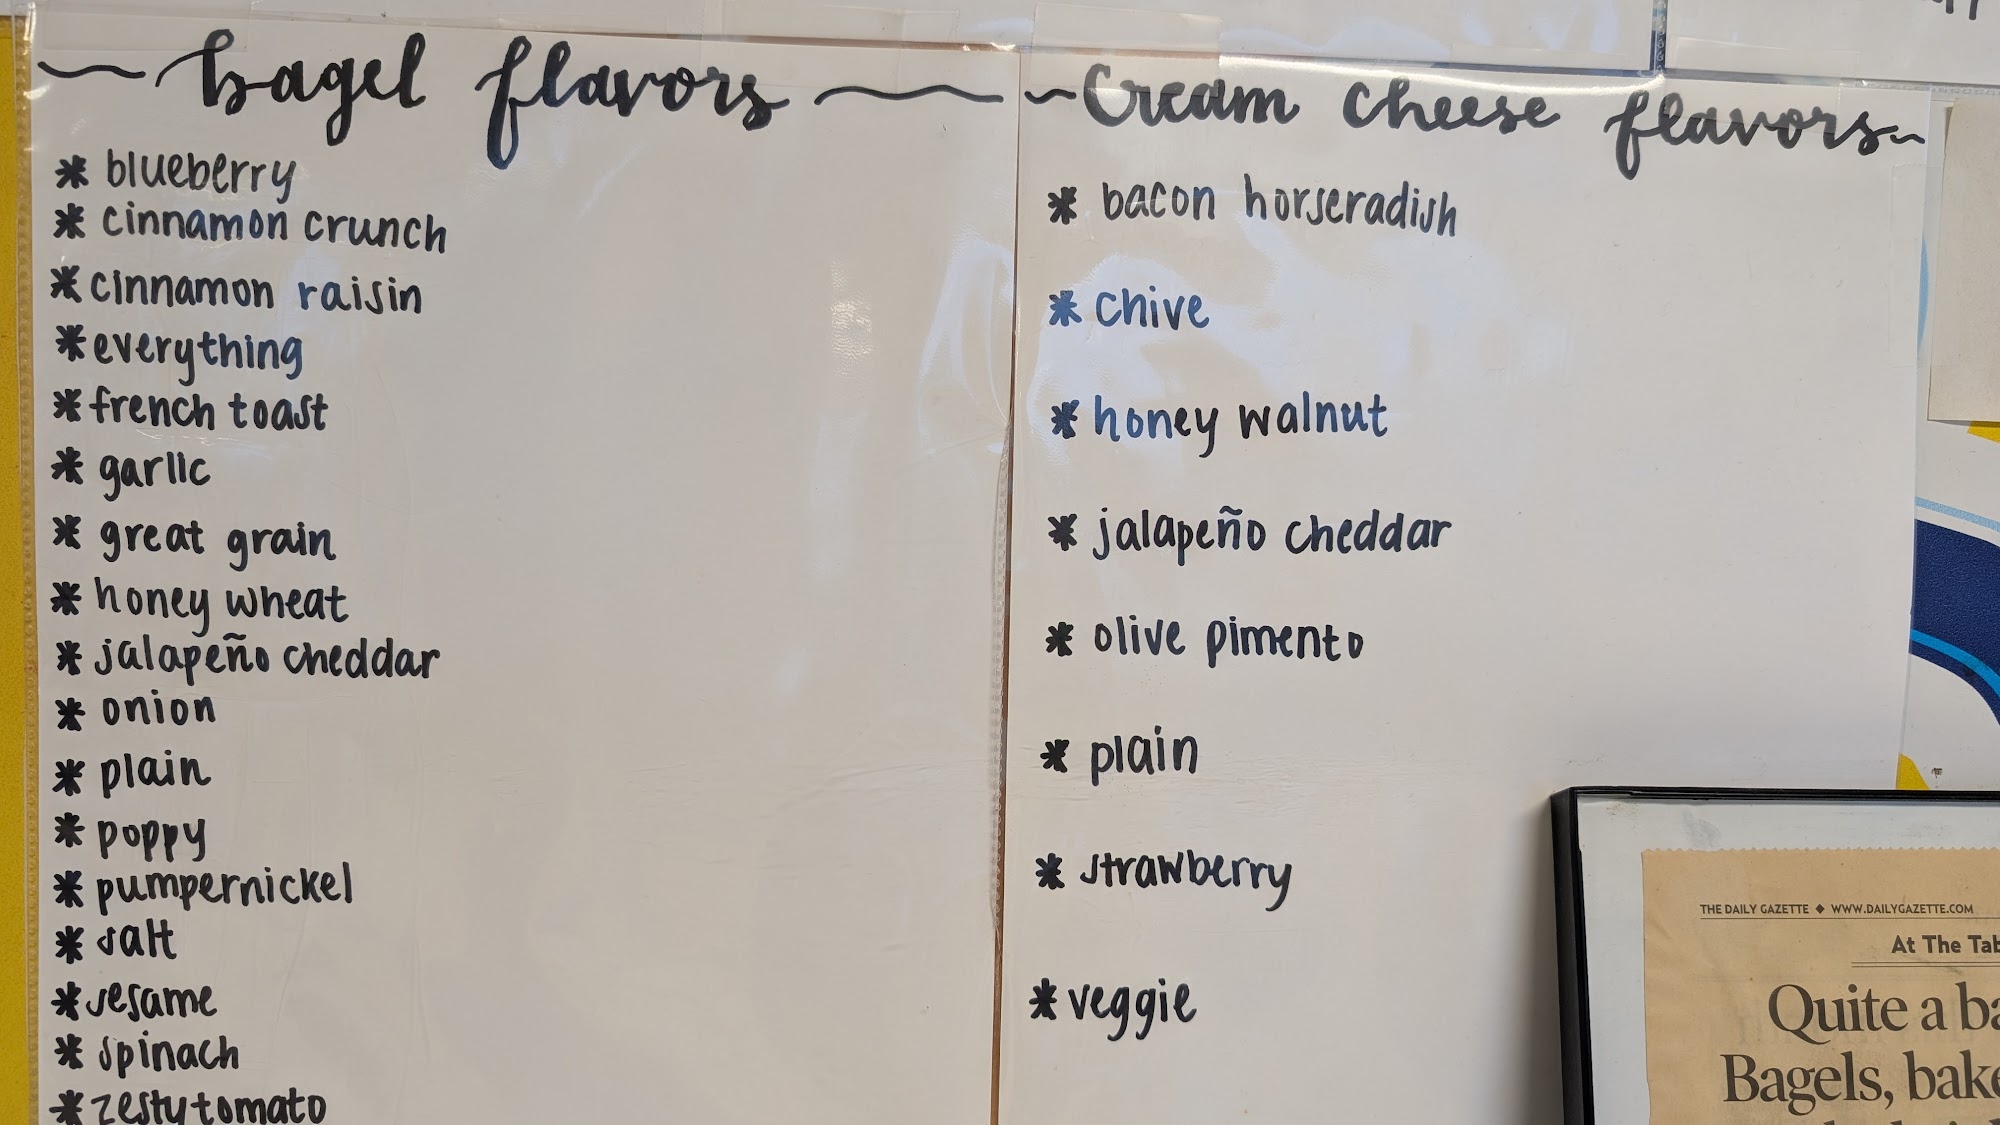 bagel flavors
* blueberry
* cinnamon crunch
* cinnamon raisin
* everything
* french toast
* garlic
* great grain
* honey wheat
* jalapeño cheddar
* onion
* plain
* poppy
* pumpernickel
* salt
* sesame
* spinach
* zesty tomato
~ Cream cheese flavors ~
* bacon horseradish
* chive
* honey walnut
* jalapeño cheddar
* olive pimento
* plain
* strawberry
* veggie
THE DAILY GAZETTE ◆ WWW.DAILYGAZETTE.COM
At The
Quite a
Bagels,